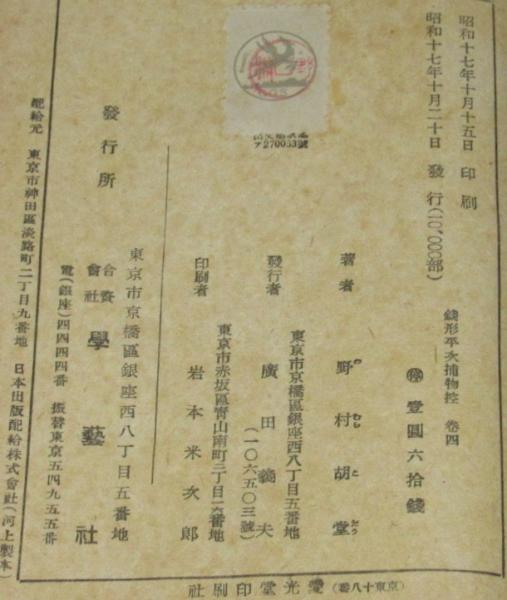 昭和十七年十月十五日 印刷
昭和十七年十月二十日 發行(一〇,〇〇〇部)
錢形平次捕物控 卷四
壹圓六拾錢
著者 野村胡堂
の むら こ だう
東京市京橋區銀座西八丁目五番地
發行者 廣田義夫
(一〇六五〇三號)
東京市赤坂區靑山南町二丁目一六番地
印刷者 岩本米次郎
ア270053號
東京市京橋區銀座西八丁目五番地
發行所 合資會社 學藝社
電(銀座)四四四四番 振替東京五四九五五番
配給元 東京市神田區淡路町二丁目九番地 日本出版配給株式會社(河上製本)
(京東十八番)愛光堂印刷社